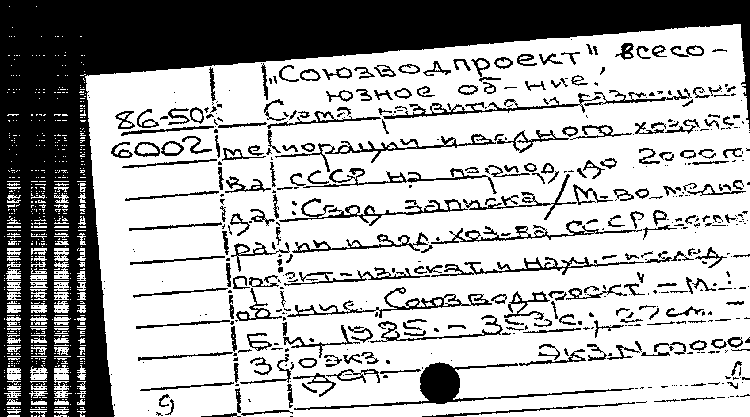 „Союзводпроект", всесо-
юзное об-ние.
86-50 Схема развития и размещения
6002 мелиорации и водного хозяйст-
ва СССР на период до 2000 го-
да: Свод. записка / М-во мелио-
рации и вод. хоз-ва СССР, Всесоюз.
проект.-изыскат. и науч.-исслед.
об-ние „Союзводпроект". - М.:
Б.и., 1985. - 353 с.; 27 см. -
300 экз. Экз. N 00000
ДСП.
9